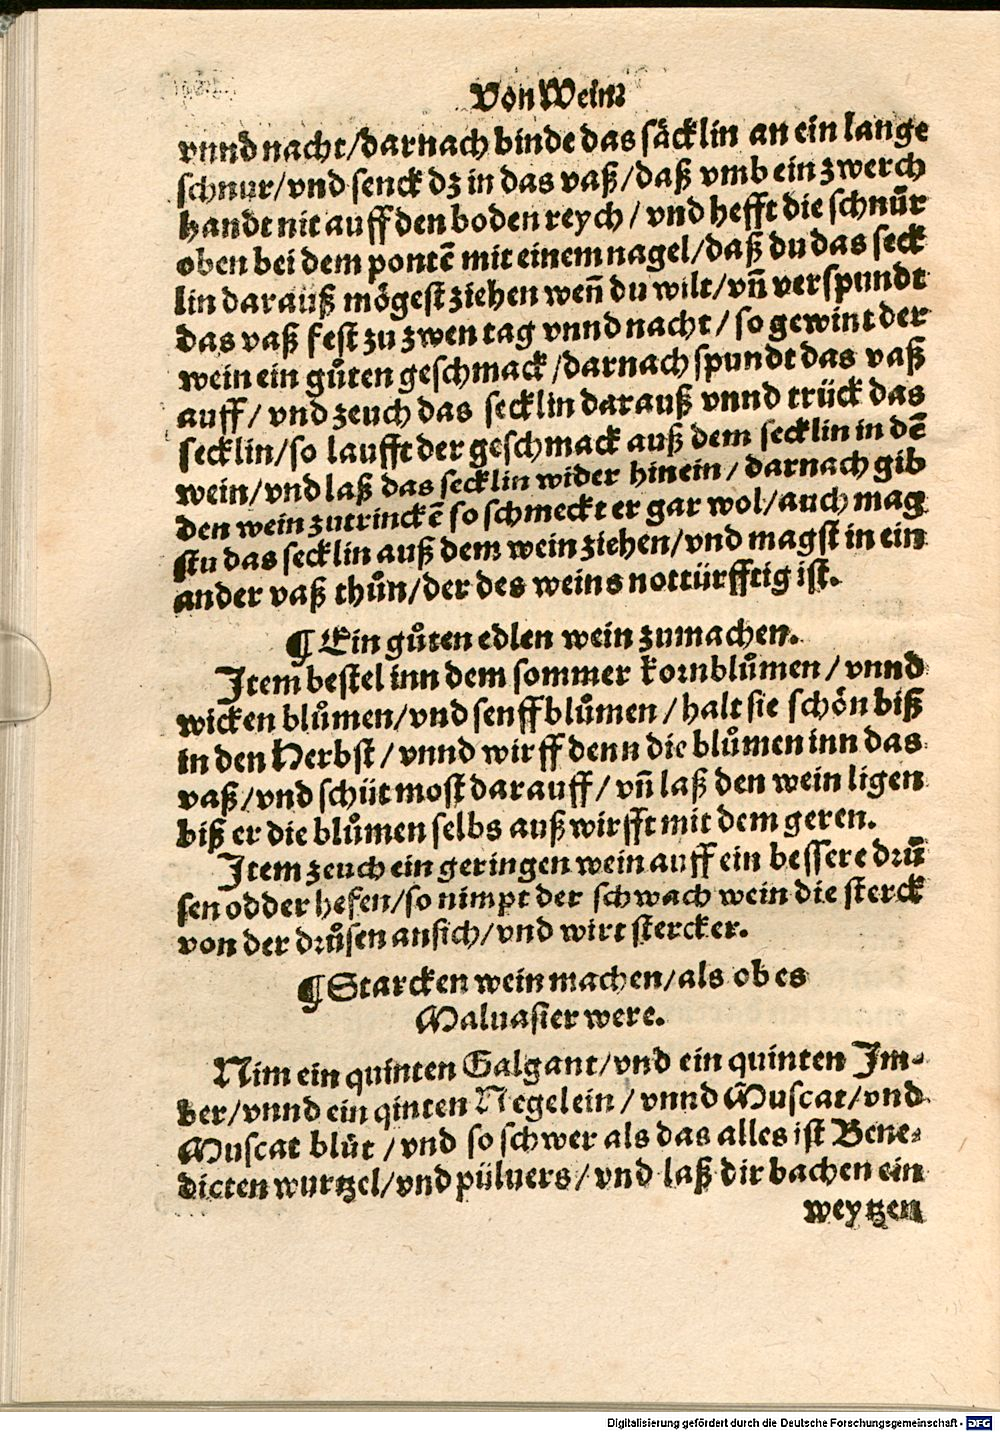 Von Wein
vnnd nacht/darnach binde das säcklin an ein lange
schnur/vnd senck dz in das vaß/daß vmb ein zwerch
handt nit auff den boden reych/vnd hefft die schnůr
oben bei dem pontē mit einem nagel/daß du das seck
lin darauß mögest ziehen weñ du wilt/vñ verspundt
das vaß fest zu zwen tag vnnd nacht/so gewint der
wein ein gůten geschmack/darnach spundt das vaß
auff/vnd zeuch das secklin darauß vnnd trück das
secklin/so laufft der geschmack auß dem secklin in dē
wein/vnd laß das secklin wider hinein/darnach gib
den wein zutrinckē so schmeckt er gar wol/auch mag
stu das secklin auß dem wein ziehen/vnd magst in ein
ander vaß thůn/der des weins nottürfftig ist.
¶ Ein gůten edlen wein zumachen.
Item bestel inn dem sommer kornblůmen/vnnd
wicken blůmen/vnd senffblůmen/halt sie schön biß
in den Herbst/vnnd wirff denn die blůmen inn das
vaß/vnd schüt most darauff/vñ laß den wein ligen
biß er die blůmen selbs auß wirfft mit dem geren.
Item zeuch ein geringen wein auff ein bessere drů
sen odder hefen/so nimpt der schwach wein die sterck
von der drůsen ansich/vnd wirt stercker.
¶ Starcken wein machen/als ob es
Maluasier were.
Nim ein quinten Galgant/vnd ein quinten Im-
ber/vnnd ein qinten Negelein/vnnd Muscat/vnd
Muscat blůt/vnd so schwer als das alles ist Bene-
dicten wurtzel/vnd püluers/vnd laß dir bachen ein
weytzen
Digitalisierung gefördert durch die Deutsche Forschungsgemeinschaft - DFG